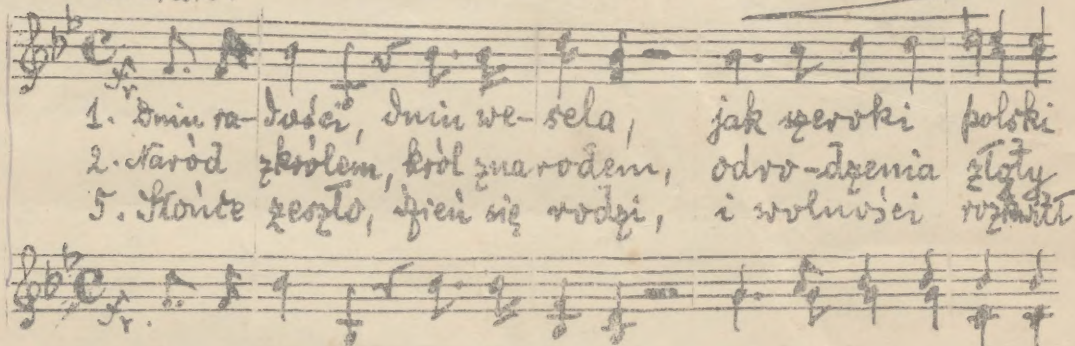 1. Dniu ra-dości, dniu we-sela, jak szeroki polski
2. Naród z królem, król z narodem, odro-dzenia złoty
5. Słońce zeszło, dzień się rodzi, i wolności